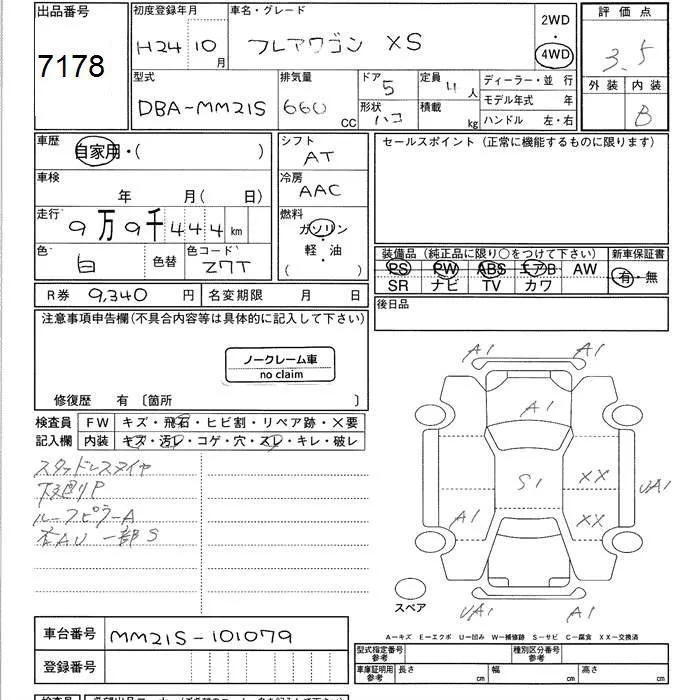 出品番号
7178
初度登録年月
H24 10 月
車名・グレード
フレアワゴン XS
2WD
・
4WD
評価点
3.5
外装 内装
B
型式
DBA-MM21S
排気量
660 CC
ドア 5
形状 ハコ
定員 4 人
積載 kg
ディーラー・並 行
モデル年式 年
ハンドル 左・右
車歴
自家用・( )
車検
年 月( 日)
走行
9万9千444km
色
白
色替
色コード
Z7T
シフト
AT
冷房
AAC
燃料
ガソリン
軽・油
( )
セールスポイント (正常に機能するものに限ります)
装備品 (純正品に限り○をつけて下さい)
PS PW ABS エアB AW
SR ナビ TV カワ
新車保証書
有・無
R券 9,340 円
名変期限 月 日
後日品
注意事項申告欄(不具合内容等は具体的に記入して下さい)
ノークレーム車
no claim
修復歴 有 〔箇所 〕
検査員
記入欄
FW キズ・飛石・ヒビ割・リペア跡・X要
内装 キズ・汚レ・コゲ・穴・スレ・キレ・破レ
スタッドレスタイヤ
下廻りP
ルーフピラーA
AU 一部S
A1 A1
A1
S1
XX
XX
UA1
A1
UA1 A1
スペア
A－キズ E－エクボ U－凹み W－補修跡 S－サビ C－腐食 XX－交換済
車台番号
MM21S-101079
登録番号
型式指定番号
参考
種別区分番号
参考
車庫証明用
参考
長さ cm
幅 cm
高さ cm
検査員